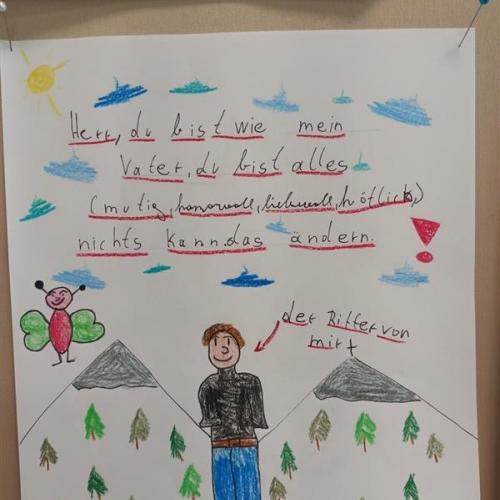 Herr, du bist wie mein
Vater, du bist alles
(mutig, humorvoll, liebevoll, höflich,)
nichts kann das ändern.
der Ritter von
mir